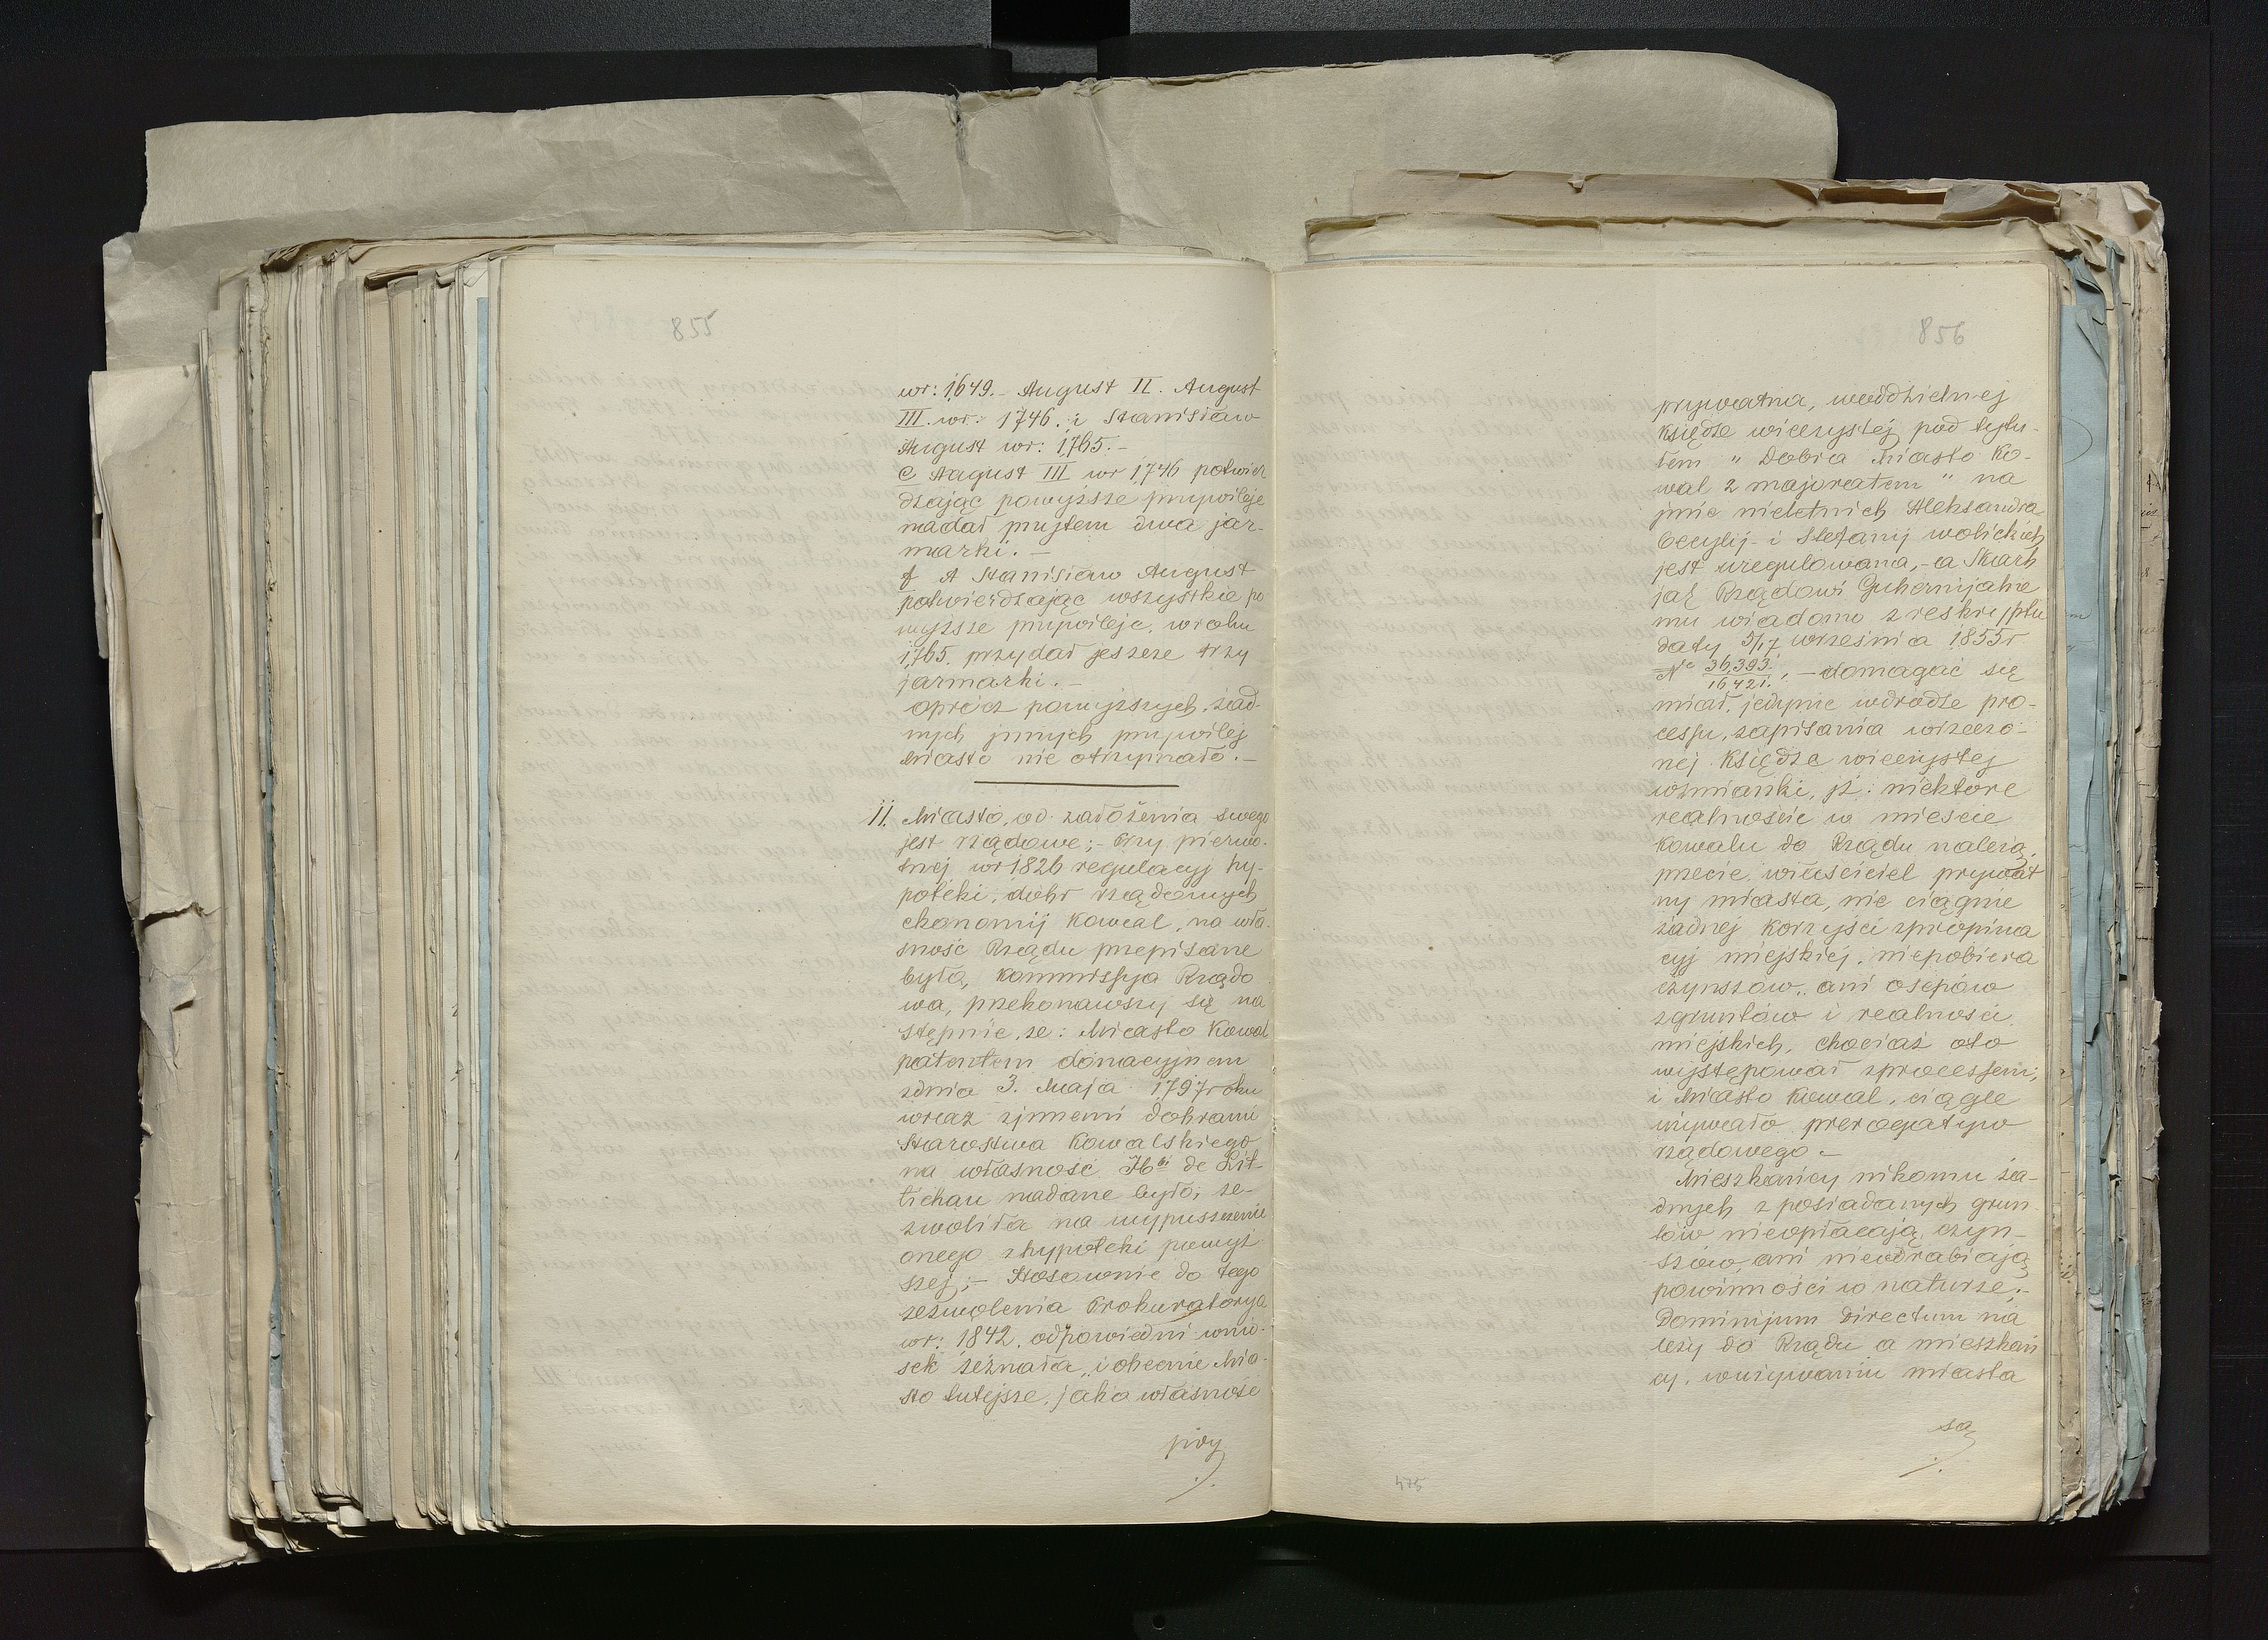 855
wr: 1649. – August II. August
III. wr: 1746. i Stanisław
August wr: 1765. –
e August III wr 1746 potwier
dzając powyższe przywileje
nadał przytem dwa jar-
marki. –
f A Stanisław August
potwierdzając wszystkie po
wyższe przywileje, wroku
1765. przydał jeszcze trzy
jarmarki. –
oprócz powyższych, żad-
nych jnnych przywilej
Miasto nie otrzymało. –
11. Miasto, od założenia swego
jest rządowe; – Przy pierwo-
tnej wr 1826 regulacyj hy-
poteki, dóbr rządowych
ekonomij Kowal, na wła-
sność Rządu przepisane
było, Kommissyja Rządo
wa, przekonawszy się na
stępnie, że: Miasto Kowal
patentem donacyjnem
zdnia 3. Maja 1797 roku
wraz zjnnemi dobrami
Starostwa Kowalskiego
na własność Hbi de Lit-
tichau nadane było; ze-
zwoliła na wypuszczenie
onego zhypoteki powyż
szej; – Stosownie do tego
zezwolenia Prokuratorya
wr: 1842. odpowiedni wnio-
sek zeznała, i obecnie Mia-
sto tutejsze, jako własność
pry
856
prywatna, woddzielnej
Księdze wieczystej pod tytu-
łem " Dobra Miasto Ko-
wal z majoratem " na
jmie nieletnich Aleksandra
Cecylij i Stefanij wolickich
jest uregulowana, – a Skarb
jak Rządowi Gubernijalne
mu wiadomo z reskryptu
daty 5/17 września 1855 r
No 36,393./16421., – domagać się
miał, jedynie wdrodze pro-
cessu, zapisania wrzeczo-
nej Księdze wieczystej
wzmianki, jż: niektóre
realności w mieście
Kowalu do Rządu należą,
przecie, właściciel prywat
ny miasta, nie ciągnie
żadnej korzyści zpropina
cyj miejskiej, niepobiera
czynszów, ani osepów
zgruntów i realności
miejskich, chociaż oto
występował zprocessem;
i Miasto Kowal, ciągle
używało prerogatyw
rządowego –
Mieszkańcy nikomu ża-
dnych z posiadanych grun
tów nieopłacają czyn-
szów, ani nieodrabiają
powinności w naturze; –
Dominijum Directum na
leży do Rządu a mieszkań
cy, wużywaniu miasta
są
475